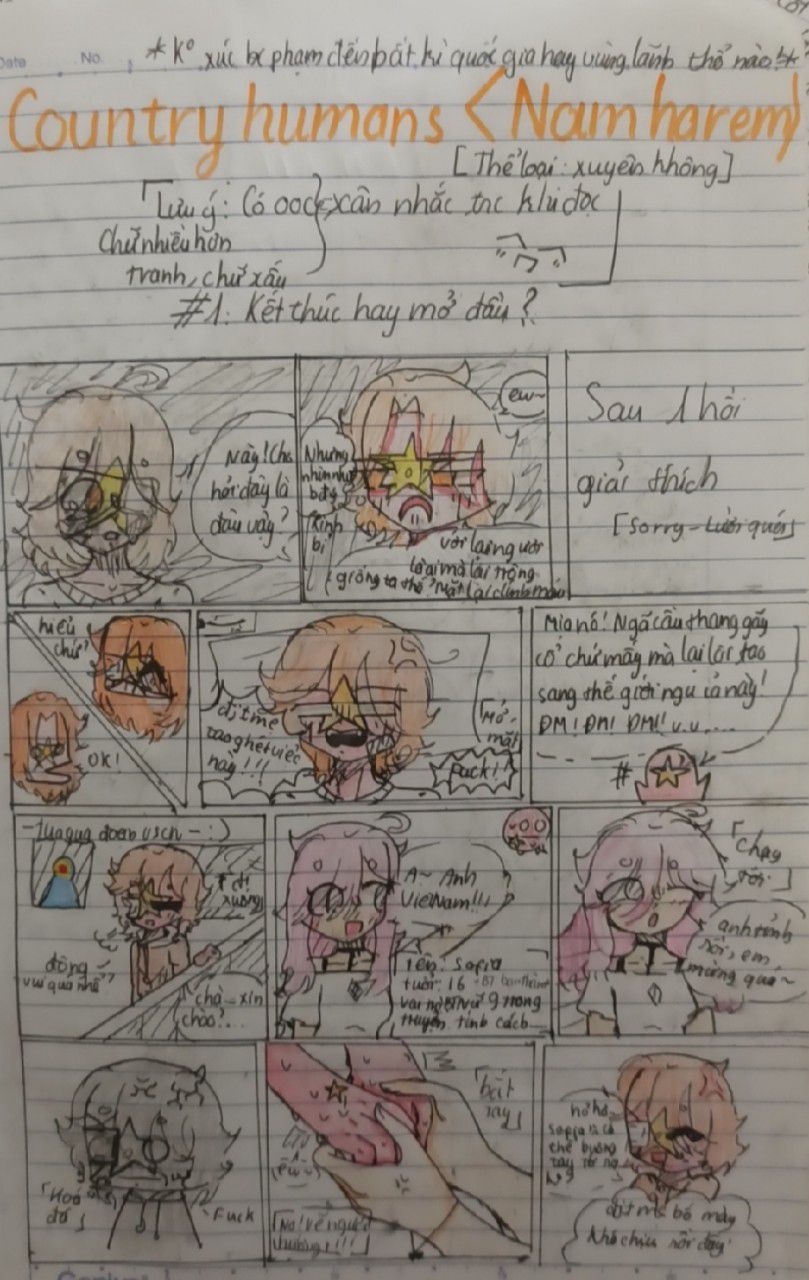 Date No.
*K° xúc phạm đến bất kì quốc gia hay vùng lãnh thổ nào!*
Country humans <Nam harem>
[Thể loại: xuyên không]
「Lưu ý: Có ooc, xân nhắc trc khi đọc
Chữ nhiều hơn
tranh, chữ xấu
#1: Kết thúc hay mở đầu?
Này! Cho
hỏi đây là
đâu vậy?
ew~
Nhưng
nhìn như
Kinh
bị
với lại ngươi
là ai mà lại trông
giống ta thế
Sau 1 hồi
giải thích
[Sorry-Lười quá]
hiểu
chứ?
OK!
địt mẹ
tao ghét việc
này!!!
「Mở
mắt
Fuck!
Mịa nó! Ngã cầu thang gãy
cổ chứ mấy mà lại lôi tao
sang thế giới ngu lả này!
ĐM! ĐM! ĐM! v.v.....
#
-Tua qua đoạn USCN- :)
đi
xuống
đông
vui quá nhể
chà_xin
chào!...
A~ Anh
VieNam!!!
Tên: Sofia
tuổi: 16
vai người nữ 9 trong
truyện tính cách
「Chạy
tới」
anh tỉnh
rồi, em
mừng quá~
「Hoá
đá」
Fuck
「bắt
tay」
(êu~)
hơ hơ
Sofia là có
thể buông
tay rồi
địt mẹ bố mày
Nhõ chịu rồi đấy